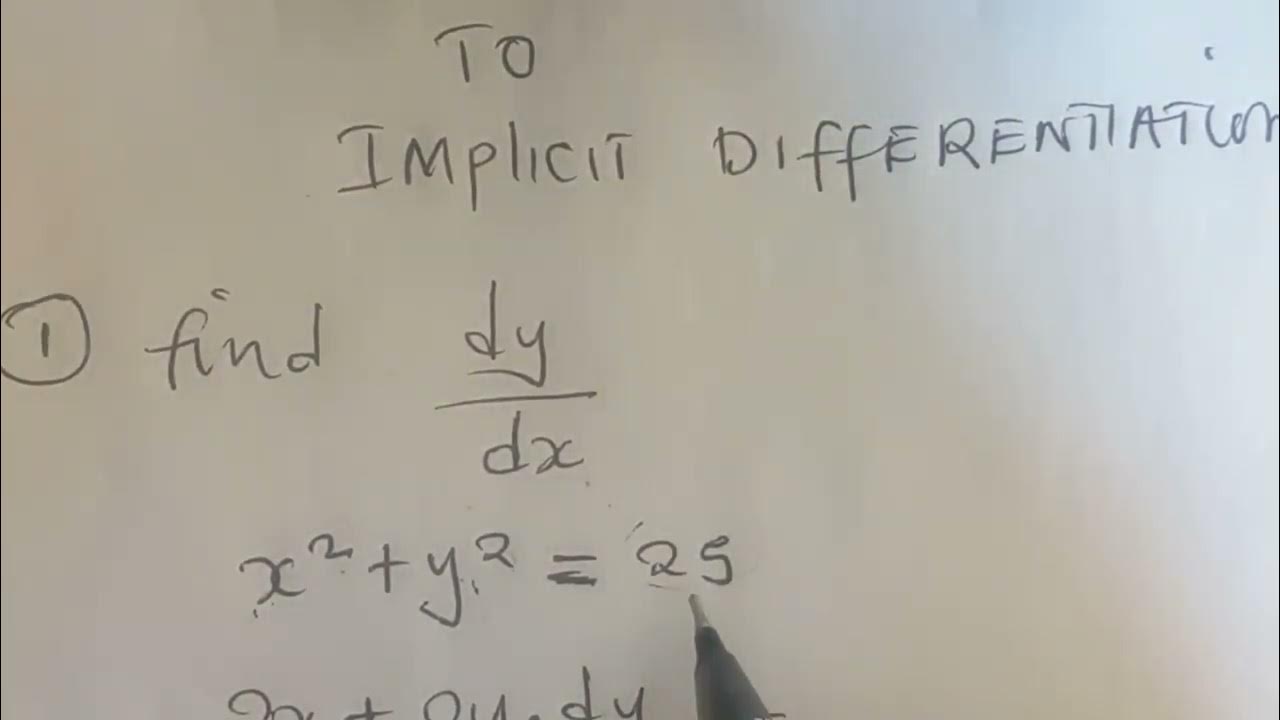 TO
IMPLICIT DIFFERENTIATION
① find dy/dx
x² + y² = 25
2x + 2y. dy